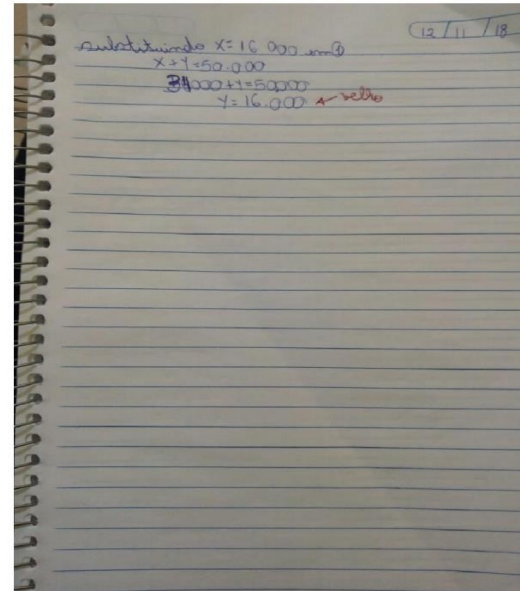 12 / 11 / 18
substituindo X = 16 000 em ①
X + Y = 50.000
34000 + Y = 50000
Y = 16.000 ← velho